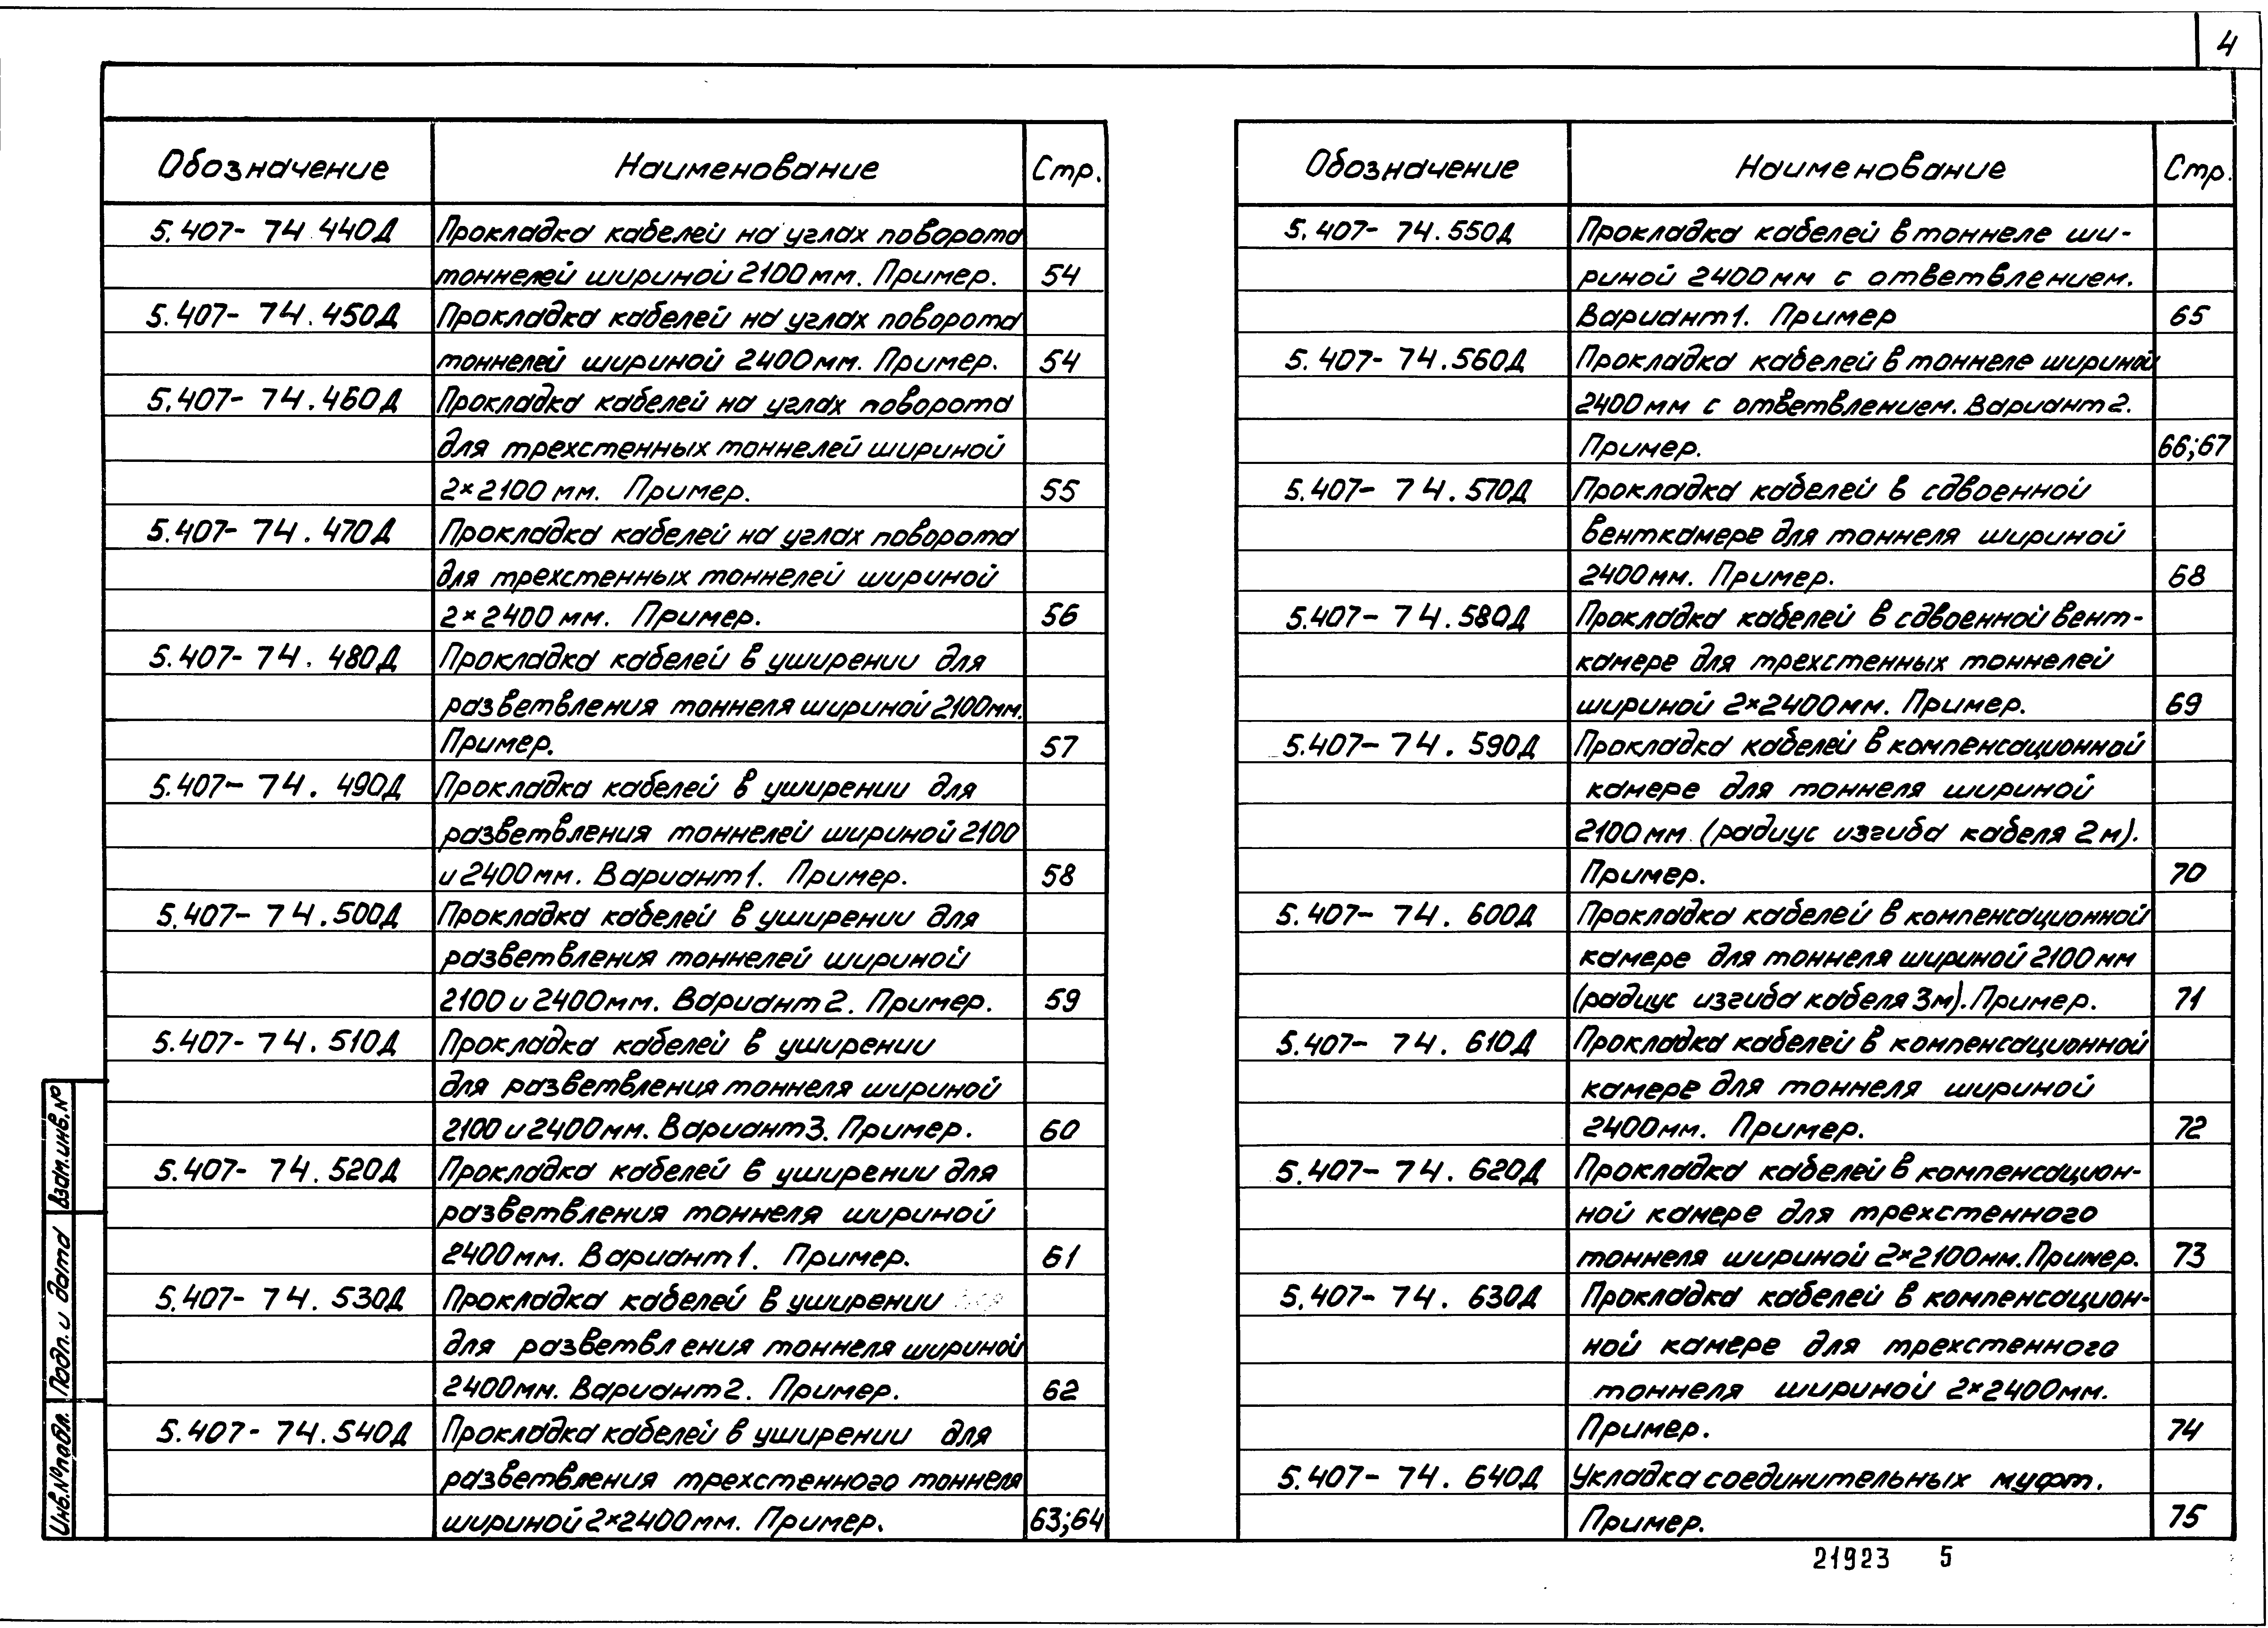 4
Обозначение Наименование Стр.
5.407-74.440Д Прокладка кабелей на углах поворота
тоннелей шириной 2100мм. Пример. 54
5.407-74.450Д Прокладка кабелей на углах поворота
тоннелей шириной 2400мм. Пример. 54
5.407-74.460Д Прокладка кабелей на углах поворота
для трехстенных тоннелей шириной
2×2100 мм. Пример. 55
5.407-74.470Д Прокладка кабелей на углах поворота
для трехстенных тоннелей шириной
2×2400 мм. Пример. 56
5.407-74.480Д Прокладка кабелей в уширении для
разветвления тоннеля шириной 2100мм.
Пример. 57
5.407-74.490Д Прокладка кабелей в уширении для
разветвления тоннелей шириной 2100
и 2400мм. Вариант 1. Пример. 58
5.407-74.500Д Прокладка кабелей в уширении для
разветвления тоннелей шириной
2100 и 2400мм. Вариант 2. Пример. 59
5.407-74.510Д Прокладка кабелей в уширении
для разветвления тоннеля шириной
2100 и 2400мм. Вариант 3. Пример. 60
5.407-74.520Д Прокладка кабелей в уширении для
разветвления тоннеля шириной
2400мм. Вариант 1. Пример. 61
5.407-74.530Д Прокладка кабелей в уширении
для разветвления тоннеля шириной
2400мм. Вариант 2. Пример. 62
5.407-74.540Д Прокладка кабелей в уширении для
разветвления трехстенного тоннеля
шириной 2×2400мм. Пример. 63;64
Обозначение Наименование Стр.
5.407-74.550Д Прокладка кабелей в тоннеле ши-
риной 2400мм с ответвлением.
Вариант 1. Пример 65
5.407-74.560Д Прокладка кабелей в тоннеле шириной
2400мм с ответвлением. Вариант 2.
Пример. 66;67
5.407-74.570Д Прокладка кабелей в сдвоенной
венткамере для тоннеля шириной
2400мм. Пример. 68
5.407-74.580Д Прокладка кабелей в сдвоенной вент-
камере для трехстенных тоннелей
шириной 2×2400мм. Пример. 69
5.407-74.590Д Прокладка кабелей в компенсационной
камере для тоннеля шириной
2100мм. (радиус изгиба кабеля 2м).
Пример. 70
5.407-74.600Д Прокладка кабелей в компенсационной
камере для тоннеля шириной 2100мм
(радиус изгиба кабеля 3м). Пример. 71
5.407-74.610Д Прокладка кабелей в компенсационной
камере для тоннеля шириной
2400мм. Пример. 72
5.407-74.620Д Прокладка кабелей в компенсацион-
ной камере для трехстенного
тоннеля шириной 2×2100мм. Пример. 73
5.407-74.630Д Прокладка кабелей в компенсацион-
ной камере для трехстенного
тоннеля шириной 2×2400мм.
Пример. 74
5.407-74.640Д Укладка соединительных муфт.
Пример. 75
Взам.инв.№
Подп. и дата
Инв.№ подл.
21923 5